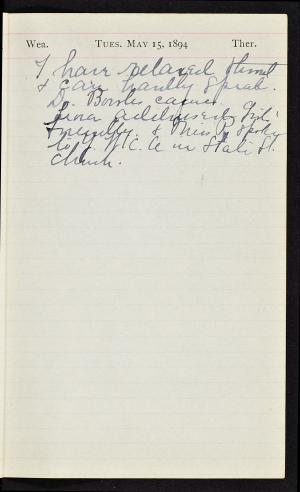 Wea. TUES. MAY 15, 1894 Ther.
I have relaxed throat
& can hardly speak.
Dr. Bowles came.
Lina addressed Girls'
Friendly. & Miss P. spoke
to Y. W. C. A in State St.
Church.